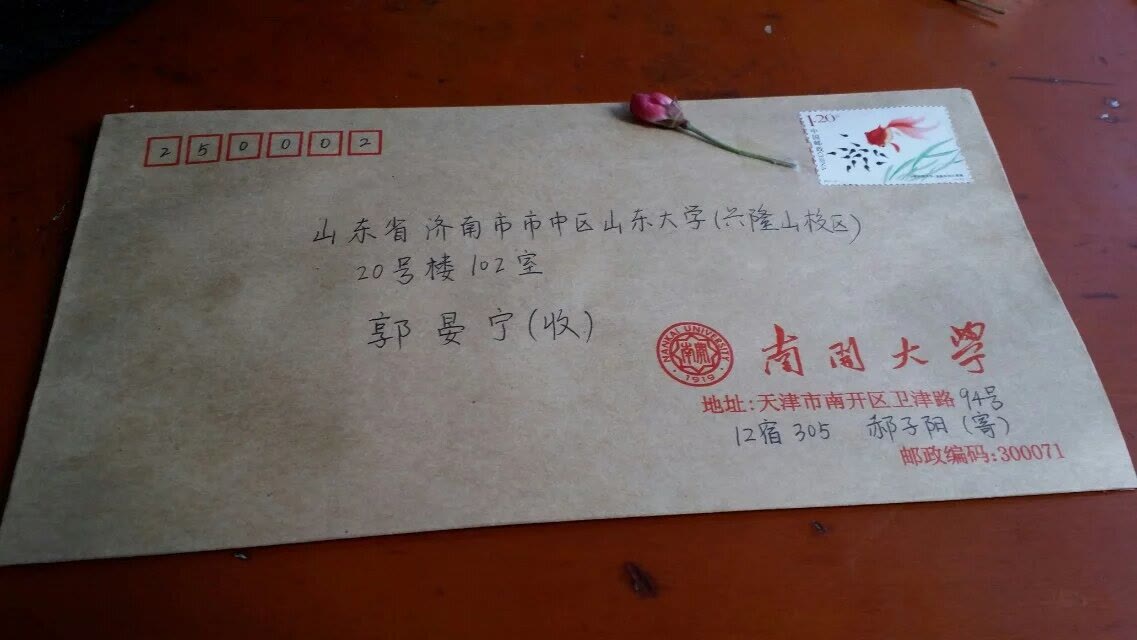 250002
1.20元
山东省济南市市中区山东大学(兴隆山校区)
20号楼102室
郭晏宁(收)
NANKAI UNIVERSITY
南開
1919
南開大學
地址:天津市南开区卫津路94号
12宿305 郝子阳(寄)
邮政编码:300071